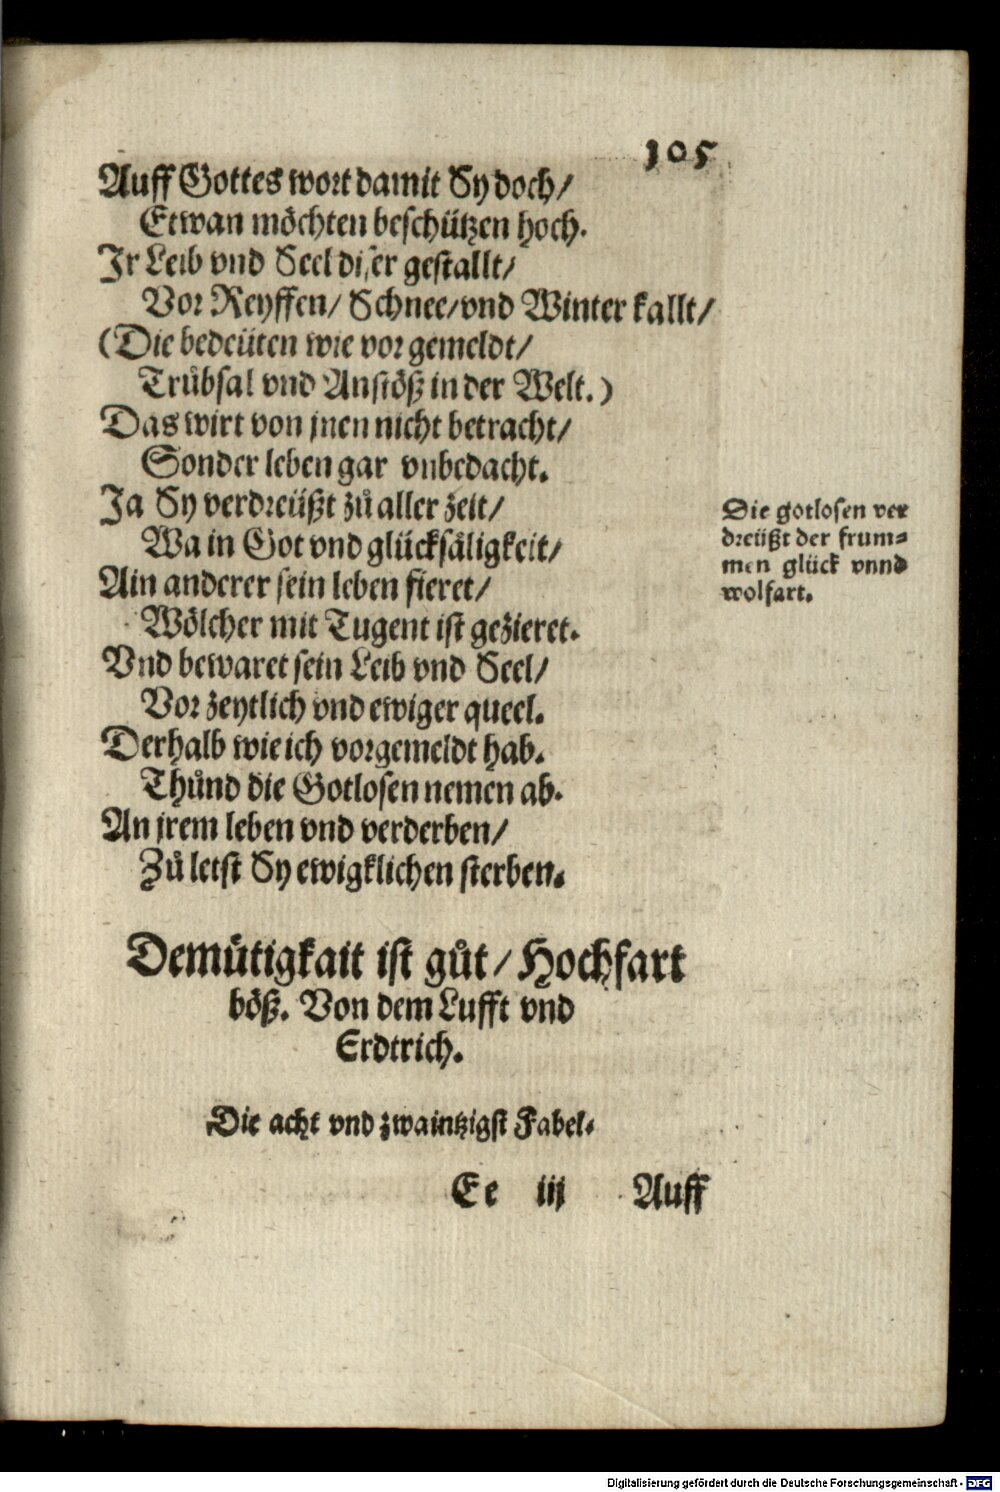 105
Auff Gottes wort damit Sy doch/
Etwan möchten beschützen hoch.
Jr Leib vnd Seel diser gestallt/
Vor Reyffen/ Schnee/vnd Winter kallt/
(Die bedeüten wie vor gemeldt/
Trübsal vnd Anstöß in der Welt.)
Das wirt von jnen nicht betracht/
Sonder leben gar vnbedacht.
Ja Sy verdreüßt zů aller zeit/
Wa in Got vnd glücksäligkeit/
Ain anderer sein leben fieret/
Wölcher mit Tugent ist gezieret.
Vnd bewaret sein Leib vnd Seel/
Vor zeytlich vnd ewiger queel.
Derhalb wie ich vorgemeldt hab.
Thůnd die Gotlosen nemen ab.
An jrem leben vnd verderben/
Zů letst Sy ewigklichen sterben.
Die gotlosen ver
dreüßt der frum⸗
men glück vnnd
wolfart.
Demütigkait ist gůt/ Hochfart
böß. Von dem Lufft vnd
Erdtrich.
Die acht vnd zwaintzigst Fabel.
Ee iij Auff
Digitalisierung gefördert durch die Deutsche Forschungsgemeinschaft - DFG